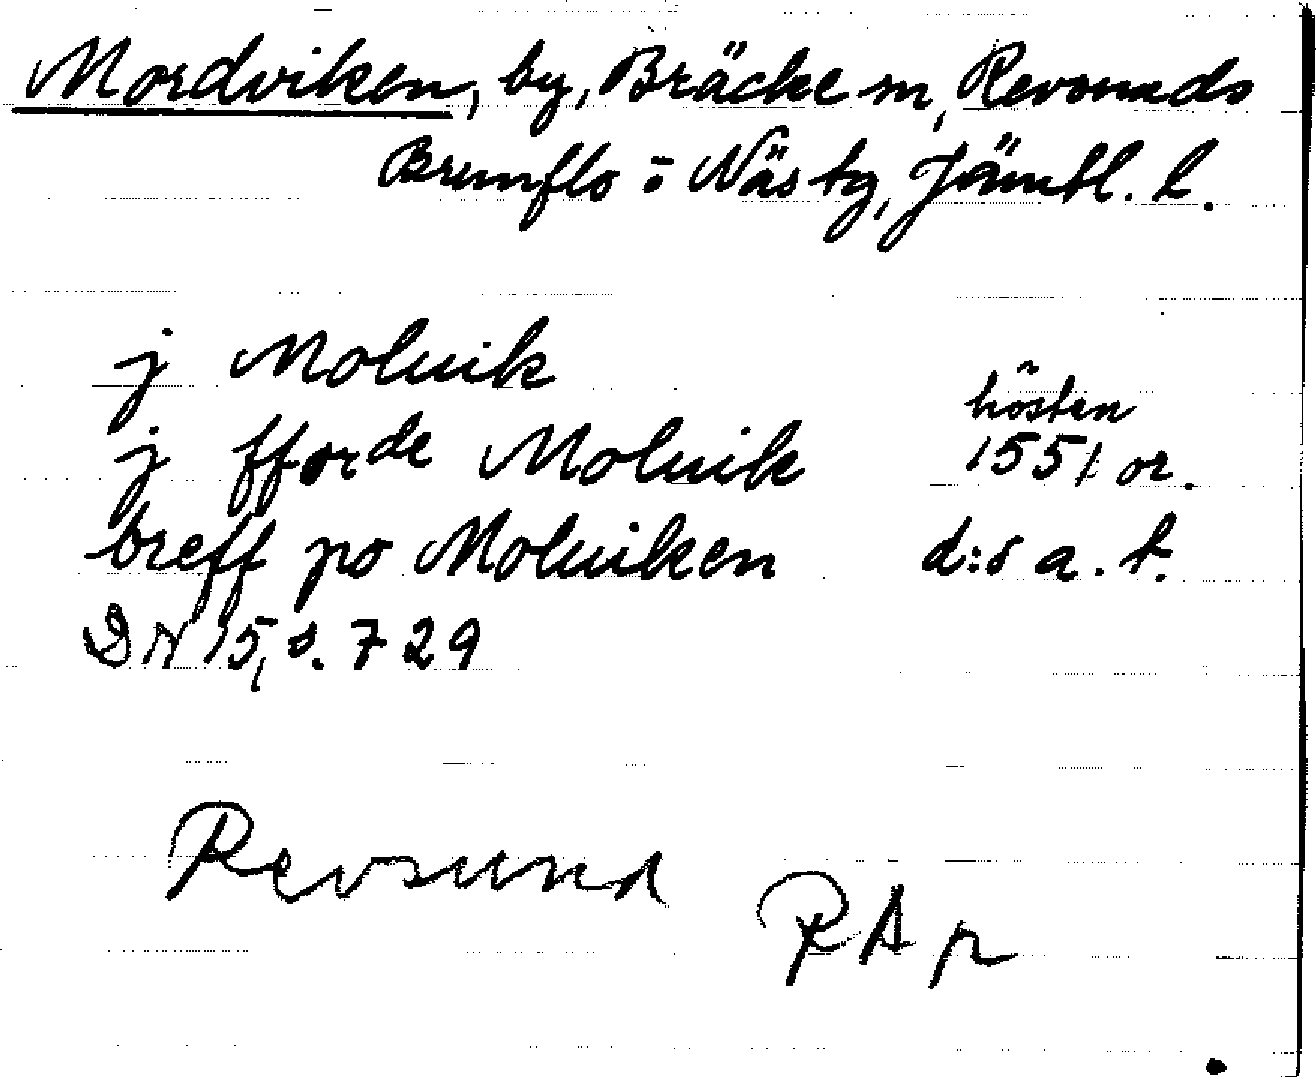 Mordviken, by, Bräcke sn, Revsunds
Brunflo o Näs tg, Jämtl. l.
j Moluik
hösten
j fforde Moluik 1551 or.
breff po Moluiken d:s a. t.
DN 15, s. 729
Revsund
RAp